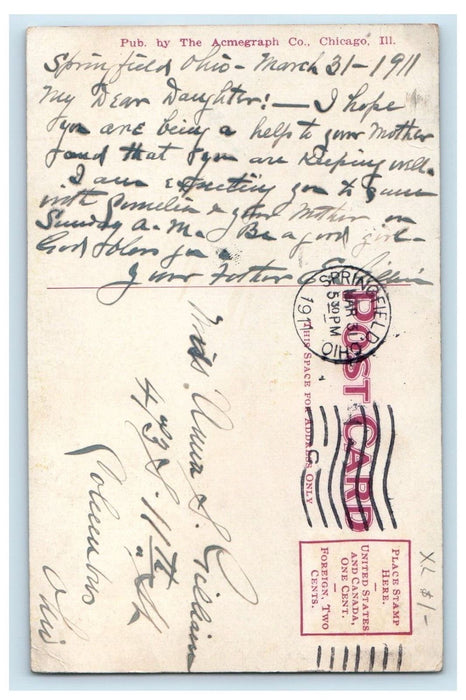 Pub. by The Acmegraph Co., Chicago, Ill.
Springfield Ohio - March 31 - 1911
My Dear Daughter: — I hope
you are being a help to your Mother
and that you are keeping well.
I am expecting you to come
with & your Mother on
Sunday A.M. Be a good girl -
God bless you
Your Father
SPRINGFIELD
MAR 31
5 30 PM
1911
OHIO
POST CARD
THIS SPACE FOR ADDRESS ONLY
Miss Anna S.
43 S. 11th St
Columbus
Ohio
PLACE STAMP
HERE.
UNITED STATES
AND CANADA,
ONE CENT.
FOREIGN, TWO
CENTS.
XL $1-